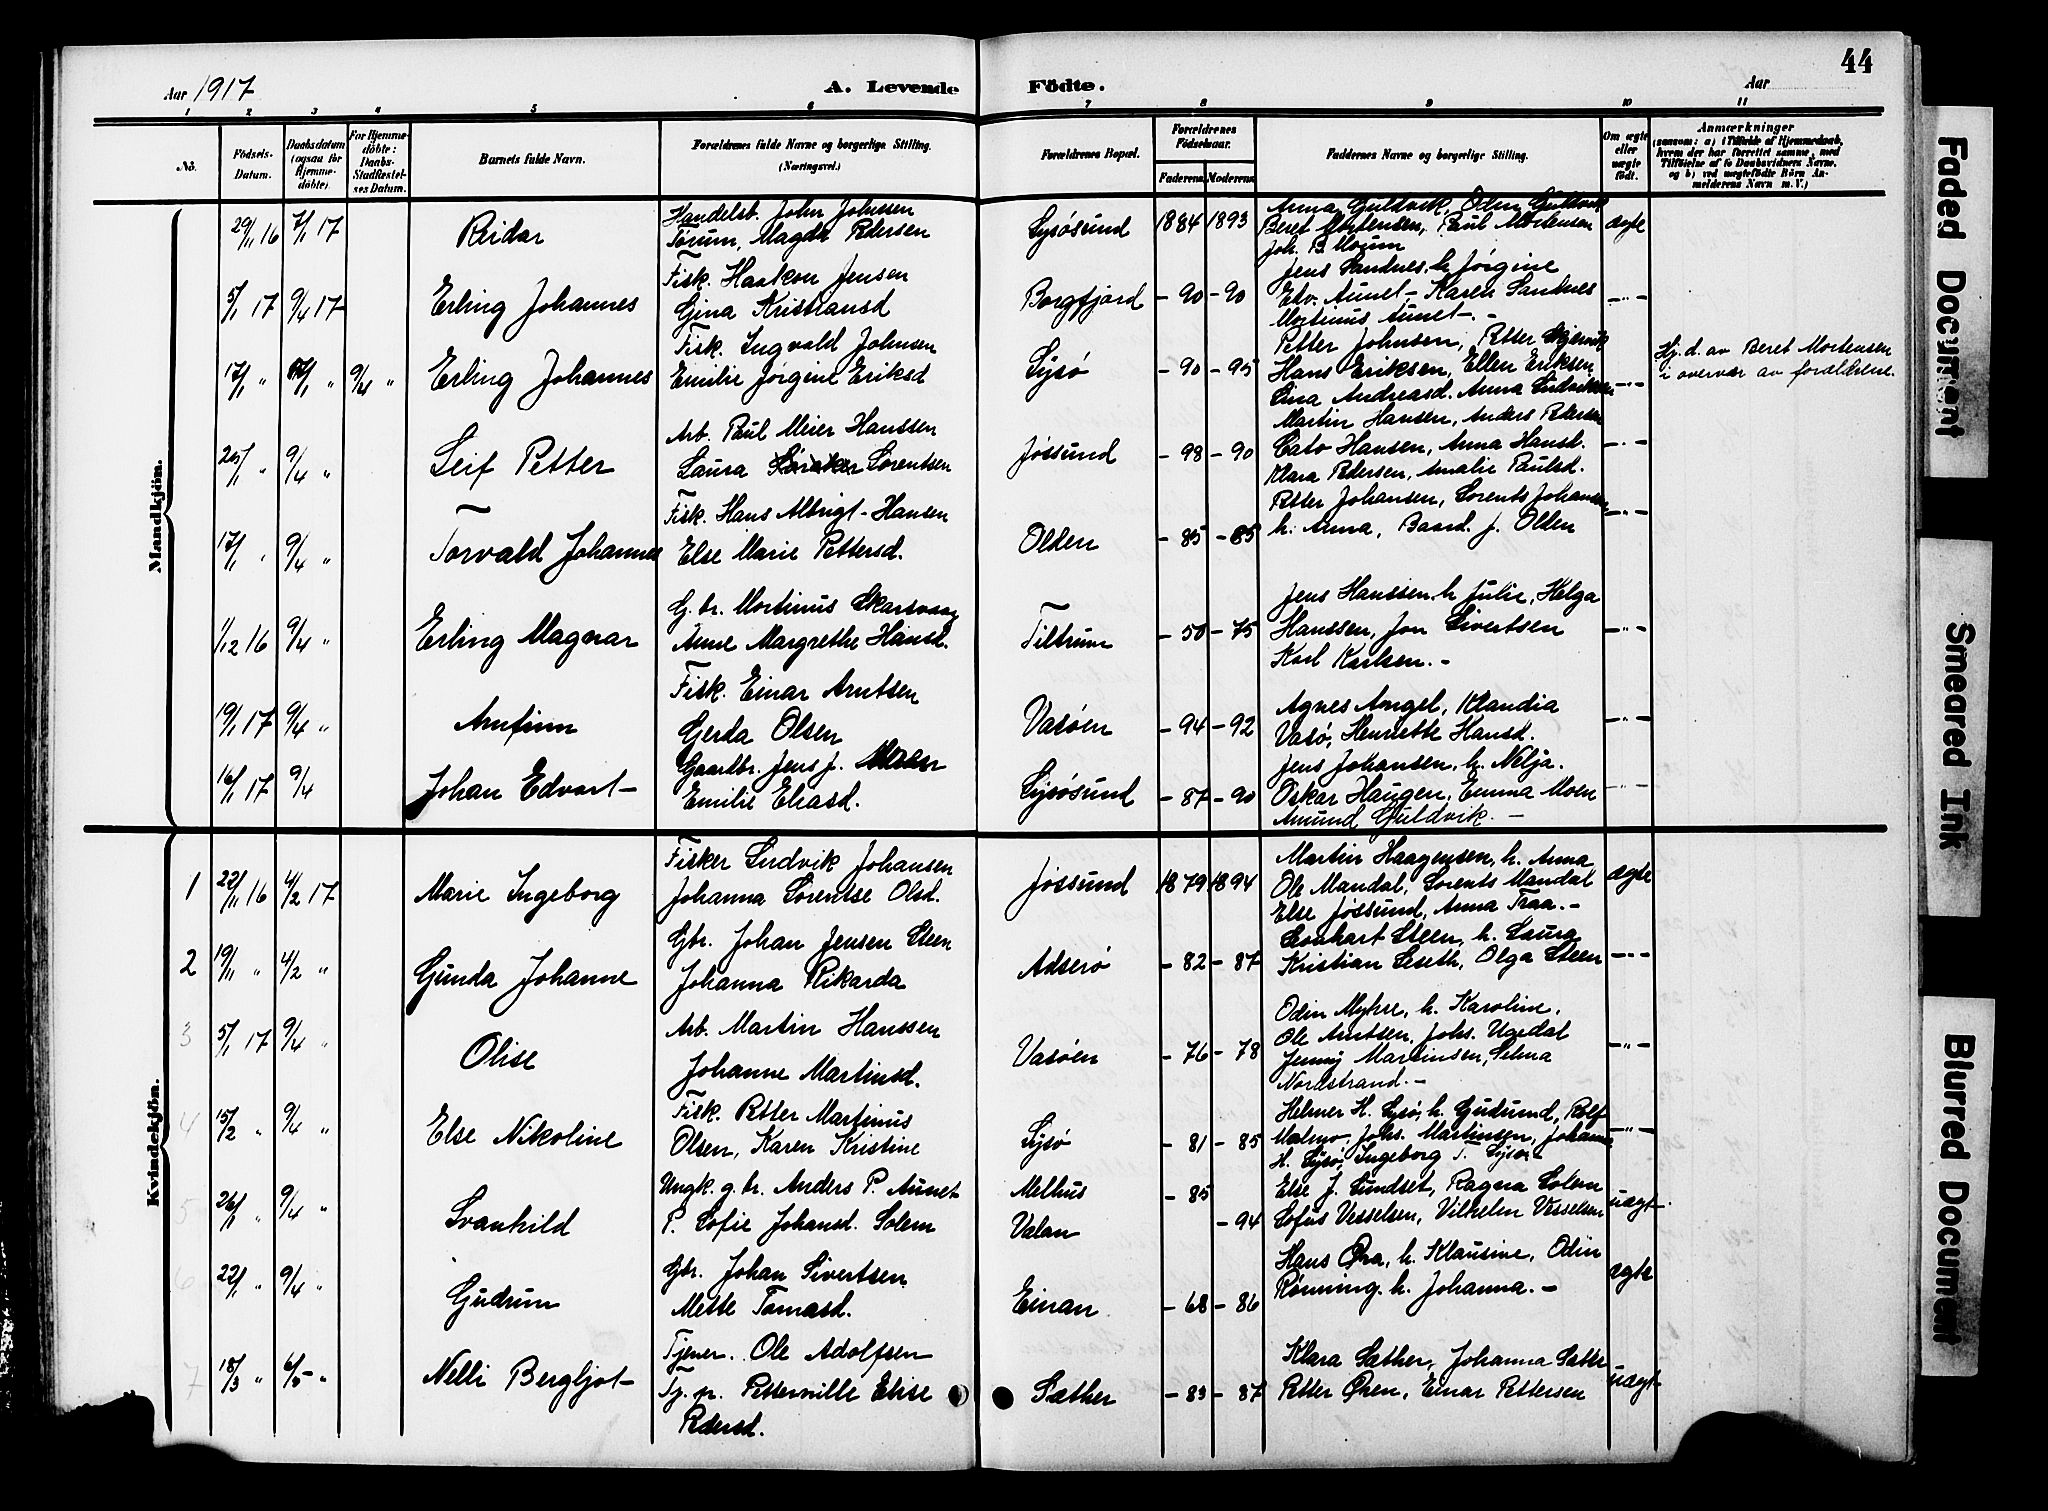 44
Aar 1917 A. Levende Födte. Aar
1 2 3 4 5 6 7 8 9 10 11
No.
Födsels-Datum.
Daabsdatum (ogsaa for Hjemmedöbte).
For Hjemmedöbte: Daabs-Stadfæstelses Datum.
Barnets fulde Navn.
Forældrenes fulde Navne og borgerlige Stilling. (Næringsvei.)
Forældrenes Bopæl.
Forældrenes Födselsaar.
Faderens Moderens
Faddernes Navne og borgerlige Stilling.
Om ægte eller uægte födt.
Anmærkninger
(saasom: a) i Tilfælde af Hjemmedaab, hvem der har forrettet samme, med Tilföielse af to Daabsvidners Navne, og b) ved uægtefödte Börn Anmelderens Navn m. V.)
Mandkjön.
29/11 16 7/1 17 Reidar
Handelsb. John Johnsen
Tørum, Magda Pedersen
Lysøsund 1884 1893
Anna Guldvik, Olen Guldvik
Beret Mortensen, Paul Mortensen
Joh. B. Moum
ægte
5/1 17 9/4 17 Erling Johannes
Fisk. Haakon Jensen
Gina Kristiansd
Borgfjord - 90 - 90
Jens Sandnes, h. Jørgine
Edv. Aunet, Karen Sandnes
Mortinus Aunet. -
- " -
17/1 " 17/1 " 9/4 " Erling Johannes
Fisk. Ingvald Johnsen
Emilie Jørgine Eriksd
Lysø - 90 - 95
Petter Johnsen, Petter Skjervik
Hans Eriksen, Ellen Eriksen
Lina Andreasd. Anna Ludviksen
- " -
Hj. d. av Beret Mortensen
i overvær av forældrene.
25/1 " 9/4 " Leif Petter
Arb. Paul Meier Hanssen
Laura Sorentsen
Jøssund - 98 - 90
Martin Hansen, Anders Petersen
Cato Hansen, Anna Hansd.
Klara Pedersen, Amalie Paulsd.
- " -
17/1 " 9/4 " Torvald Johannes
Fisk. Hans Albrigt Hansen
Else Marie Pettersd.
Olden - 85 - 85
Petter Johansen, Lorents Johansen
h. Anna, Baard J. Olden
- " -
1/12 16 9/4 " Erling Magnar
G. br. Mortinus Skarsvaag
Anne Margrethe Hansd.
Tiltrum - 50 - 75
Jens Hanssen, h. Julie, Helga
Hanssen, Jon Sivertsen
Karl Karlsen. -
- " -
19/1 17 9/4 " Arnfinn
Fisk. Einar Arntsen
Gerda Olsen
Vasøen - 94 - 92
Agnes Angel, Klandia
Vasø, Henriette Hansd.
- " -
16/1 17 9/4 Johan Edvart
Gaardbr. Jens J. Moen
Emilie Eliasd.
Lysøsund - 87 - 90
Jens Johansen, h. Nelja.
Oskar Haugen, Emma Moen
Amund Guldvik. -
- " -
Kvindekjön.
1 22/11 16 4/2 17 Marie Ingeborg
Fisker Ludvik Johansen
Johanna Lorentse Olsd.
Jøssund 1879 1894
Martin Haagensen, h. Anna
Ole Mandal, Lorents Mandal
Else Jøssund, Anna Traa. -
ægte
2 19/11 " 4/2 " Gunda Johanne
Gbr. Johan Jensen Steen
Johanna Rikarda
Adserø - 82 - 87
Lenhart Steen, h. Laura
Kristian Leseth, Olga Steen
- " -
3 5/1 17 9/4 " Olise
Arb. Martin Hanssen
Johanne Martinsd.
Vasøen - 76 - 78
Odin Myhre, h. Karoline,
Ole Arntsen, Johs. Ugedal
Jenny Martinsen, Selma
Nordstrand. -
- " -
4 15/2 " 9/4 " Else Nikoline
Fisk. Petter Martinus
Olsen, Karen Kristine
Lysø - 81 - 85
Helmer H. Lysø, h. Gudrund, Rolf
Malmo, Johs. Martinsen, Johanna
H. Lysø, Ingeborg T. Lysø
- " -
5 26/1 " 9/4 " Svanhild
Ungk. g. br. Anders P. Aunet
P. Sofie Johansd. Solem
Melhus - 85
Valan - 94
Else J. Sundset, Ragna Solem
Sofus Vesselsen, Vilhelm Vesselsen
uægt.
6 22/1 " 9/4 " Gudrun
Gbr. Johan Sivertsen
Mette Tomasd.
Einan - 68 - 86
Hans Øra, h. Klausine, Odin
Rønning, h. Johanna. -
ægte
7 18/3 " 6/5 " Nelli Bergljot
Tjener. Ole Adolfsen
Tj. p. Petternille Elise
Pedersd.
Sæther - 83 - 87
Klara Sæther, Johanna Sæther
Petter Øien, Einar Pettersen
uægt
Faded Document
Smeared Ink
Blurred Document